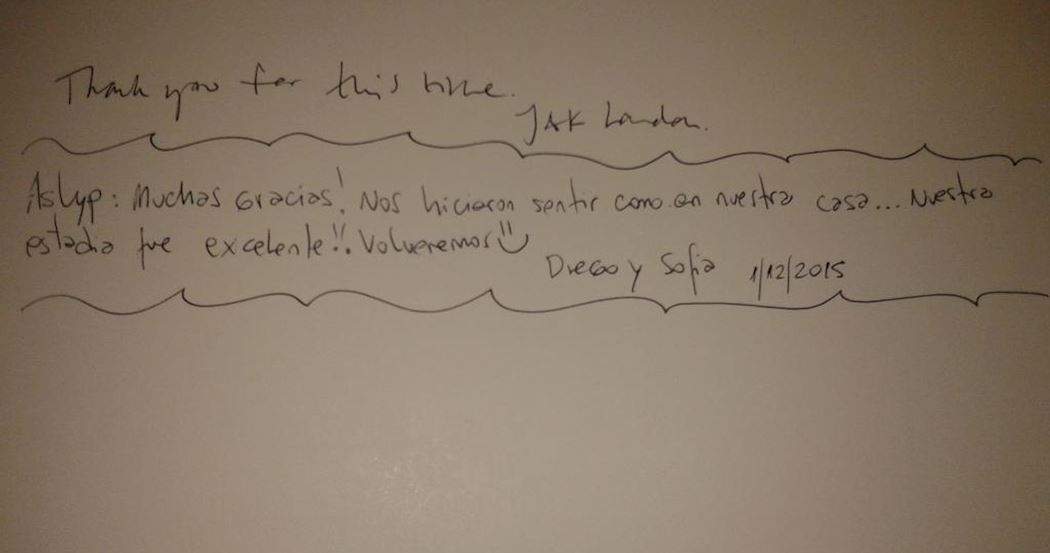 Thank you for this time.
JAK London.
Aslyp: Muchas Gracias! Nos hicieron sentir como en nuestra casa... Nuestra
estadia fue excelente!!. Volveremos
Diego y Sofia 1/12/2015